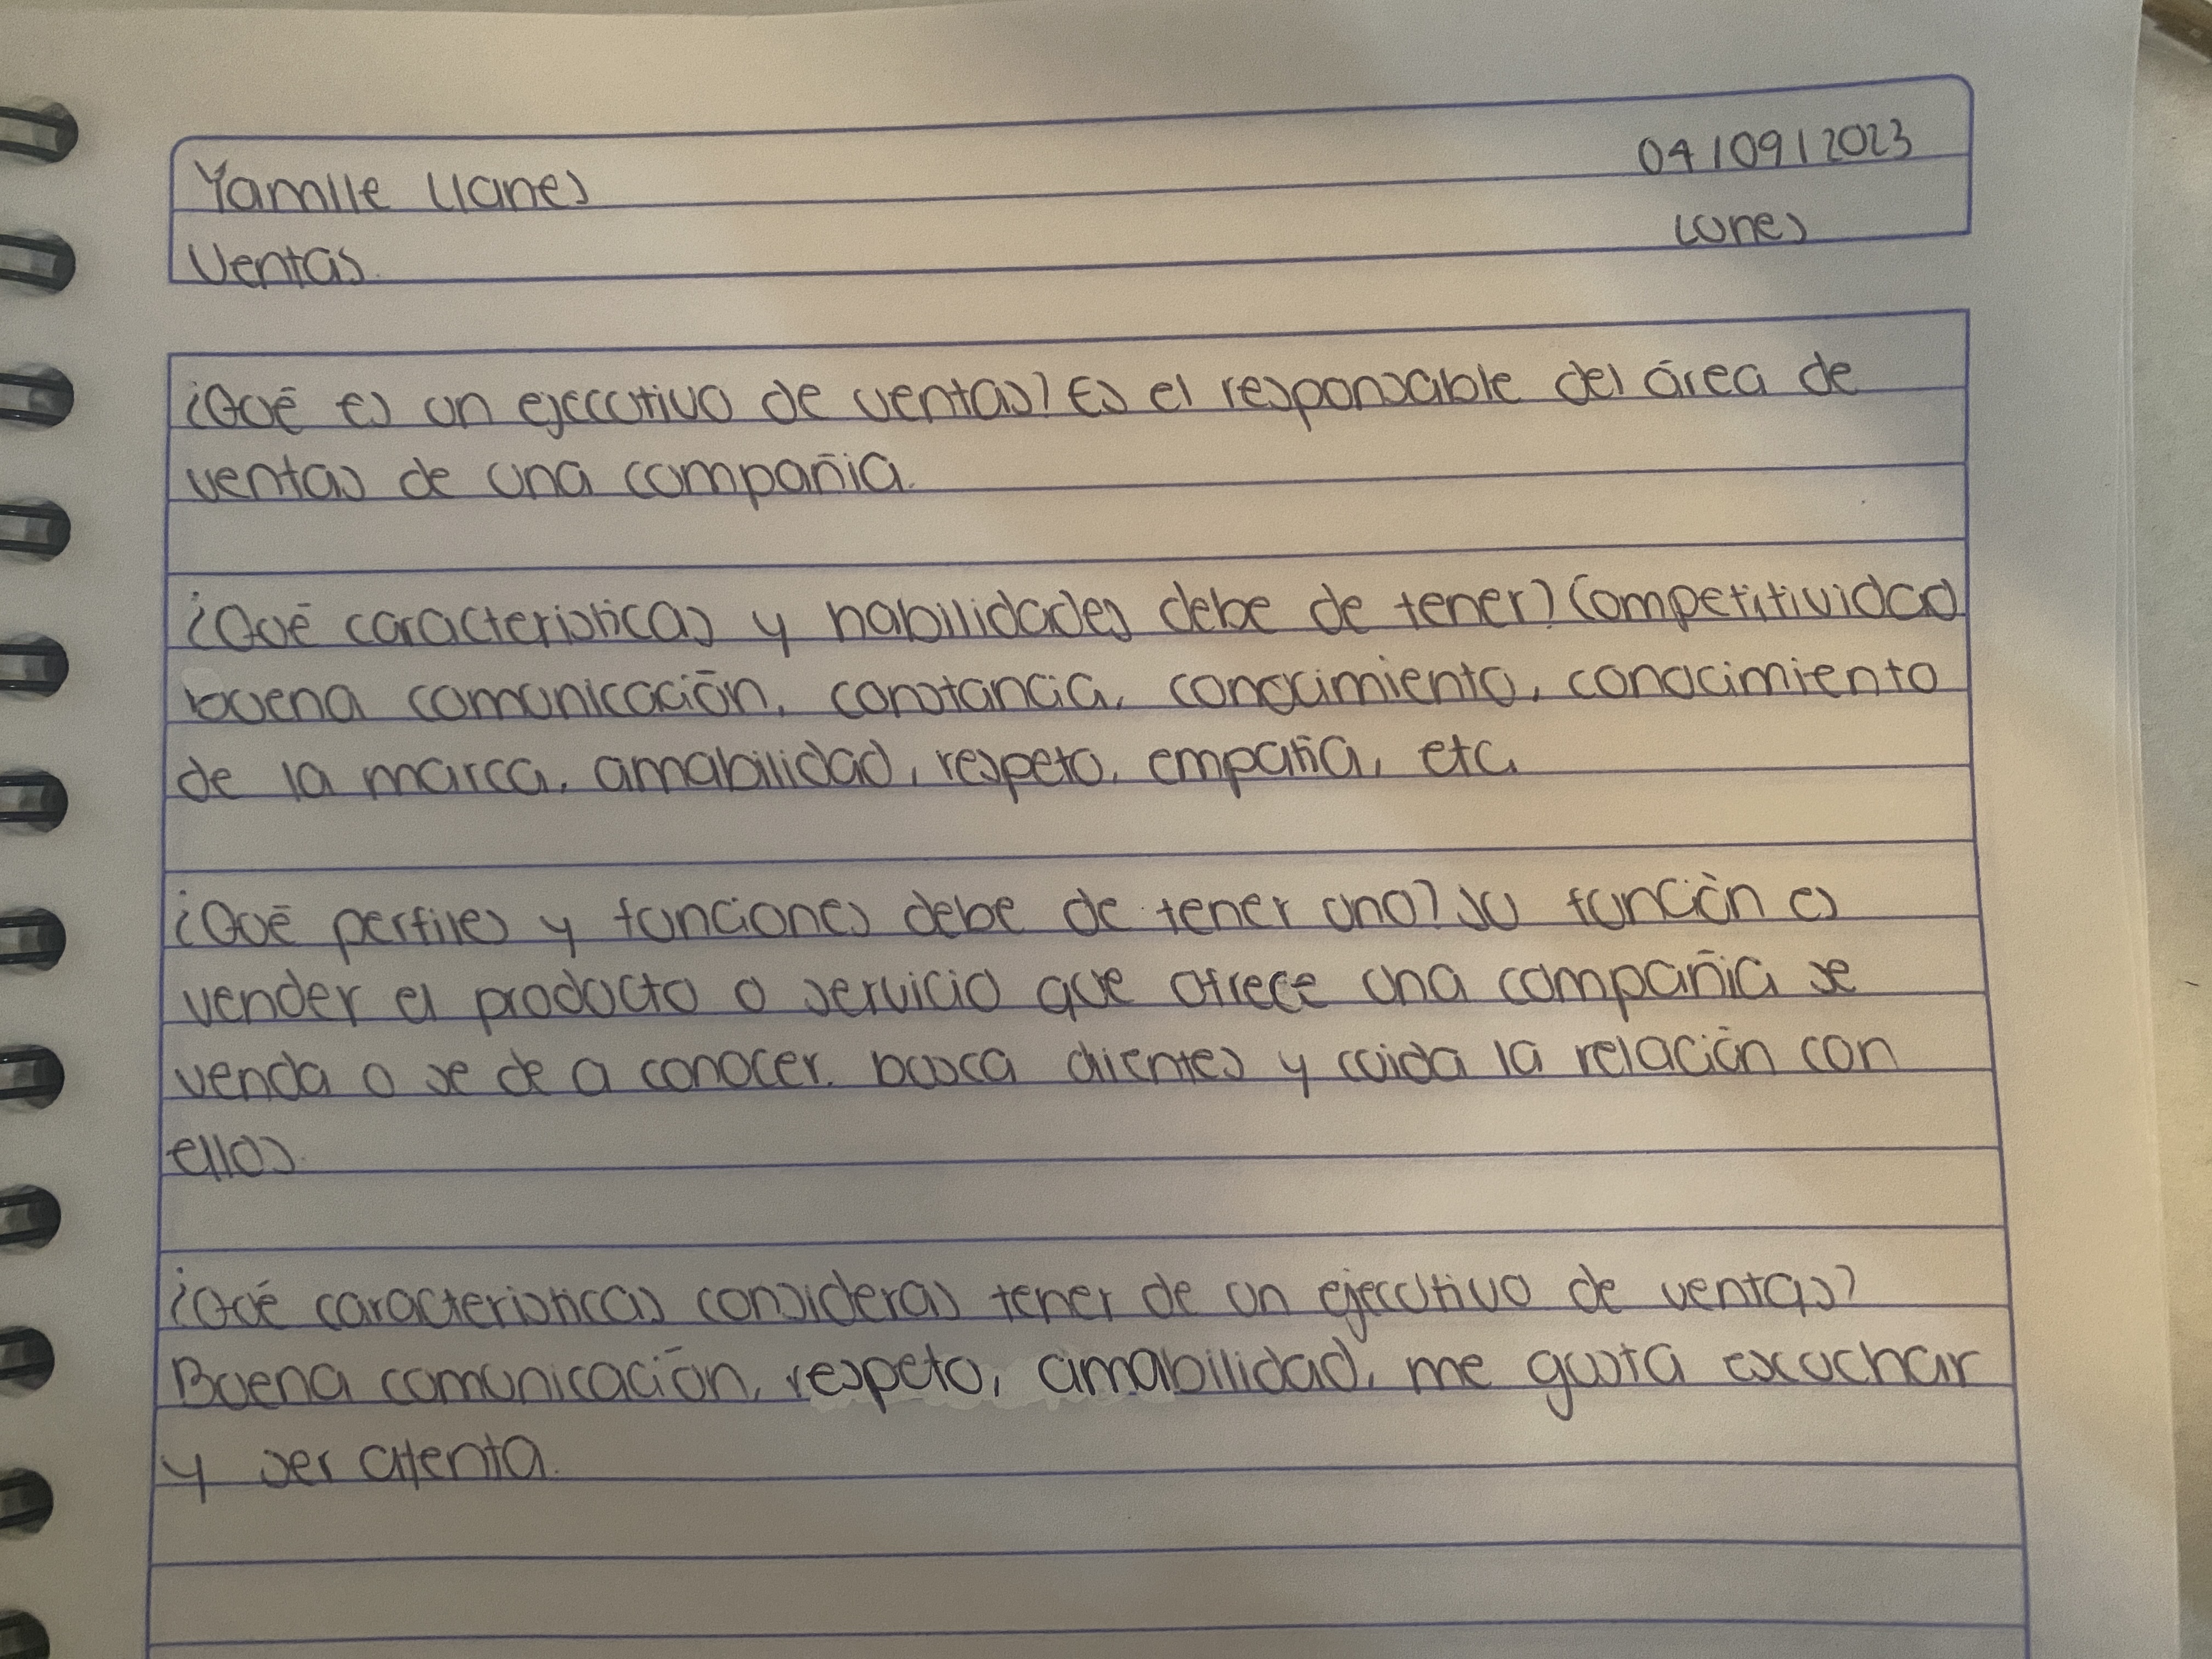 Yamile Llanes
04/09/2023
Lunes
Ventas.
¿Qué es un ejecutivo de ventas? Es el responsable del área de
ventas de una compañia.
¿Qué caracteristicas y habilidades debe de tener? Competitividad
buena comunicación, constancia, conocimiento, conocimiento
de la marca, amabilidad, respeto, empatia, etc.
¿Qué perfiles y funciones debe de tener uno? Su función es
vender el producto o servicio que ofrece una compañia se
venda o se de a conocer. busca clientes y cuida la relación con
ellos.
¿Qué caracteristicas consideras tener de un ejecutivo de ventas?
Buena comunicación, respeto, amabilidad, me gusta escuchar
y ser atenta.